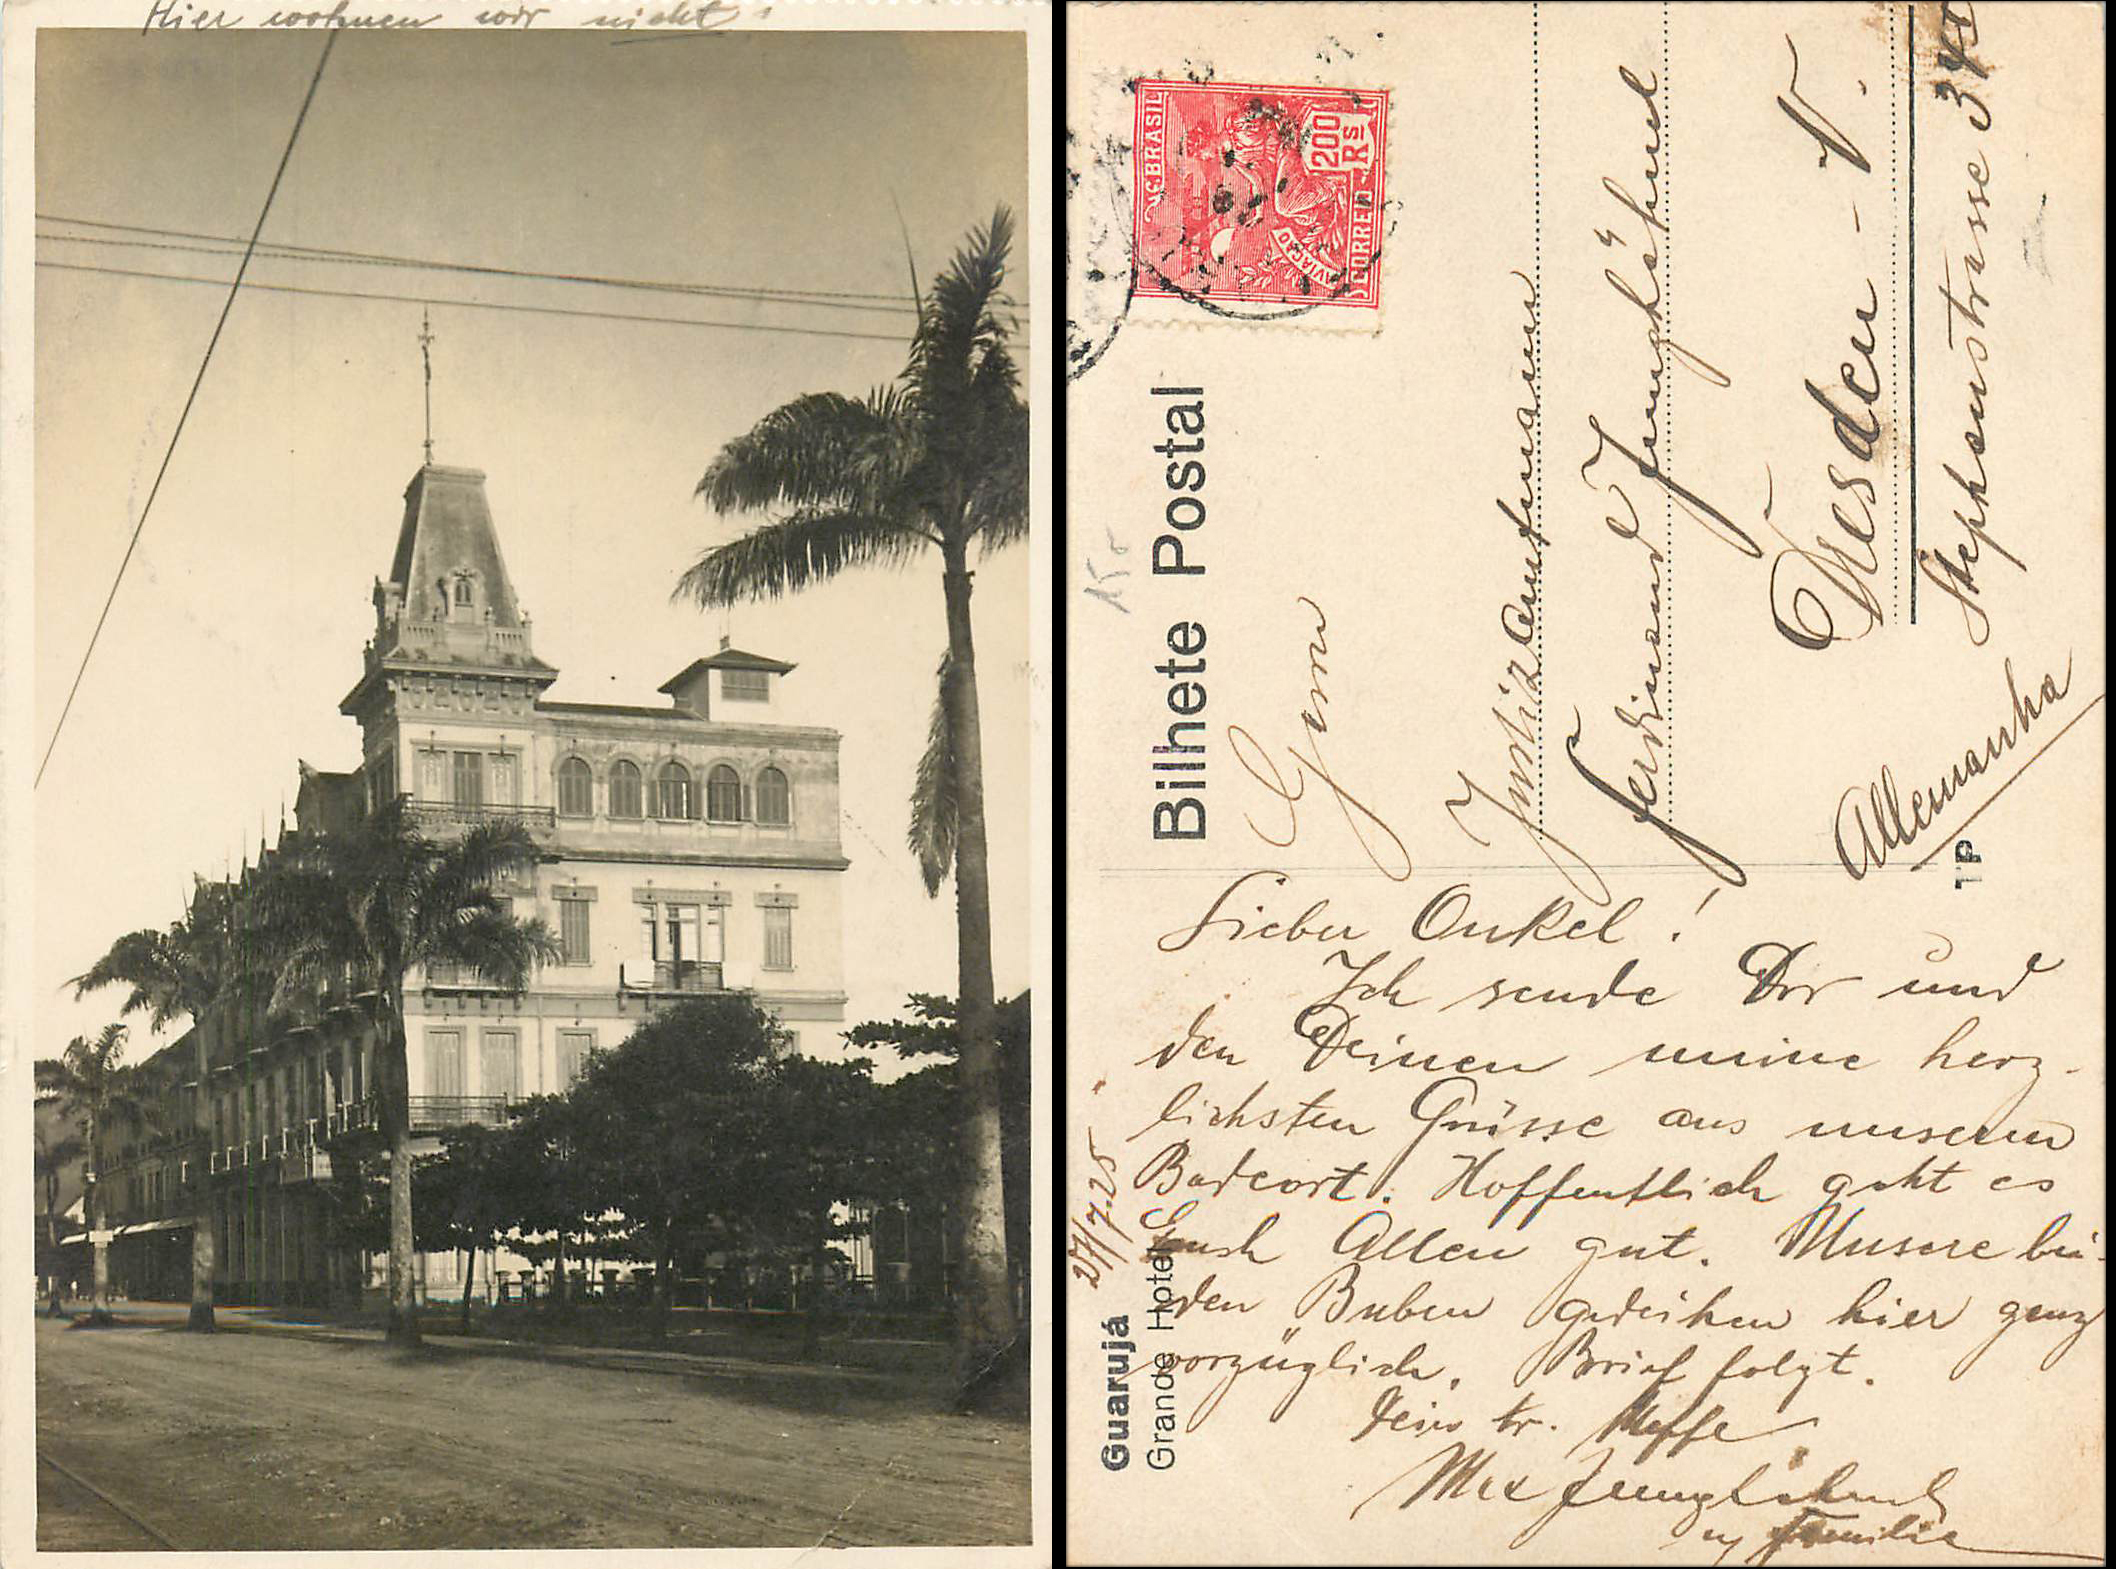 Hier wohnen wir nicht!
BRASIL
200
Rs
AVIAÇÃO
CORREIO
Bilhete Postal
Justizamtmann
Ferdinand Junghähnel
Dresden - N.
Stephanstrasse 34
Allemanha
Lieber Onkel!
Ich sende Dir und
den Deinen meine herz-
lichsten Grüsse aus unserm
Badeort. Hoffentlich geht es
Euch Allen gut. Unsere bei-
den Buben gedeihen hier ganz
vorzüglich. Brief folgt.
Dein tr. Neffe
Max Junghähnel
u. Familie
27/7.25
Guarujá
Grande Hotel